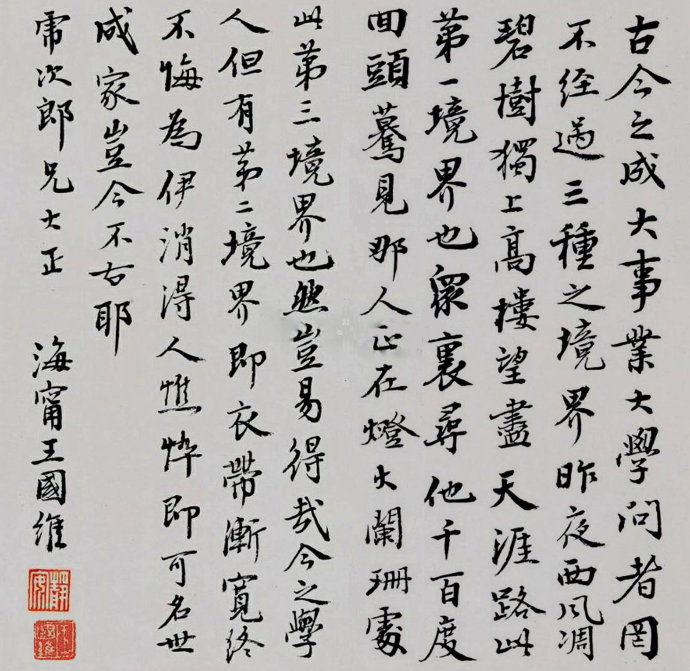 古今之成大事業大學問者罔
不經過三種之境界昨夜西風凋
碧樹獨上高樓望盡天涯路此
第一境界也眾裏尋他千百度
回頭驀見那人正在燈火闌珊處
此第三境界也然豈易得哉今之學
人但有第二境界即衣帶漸寬終
不悔為伊消得人憔悴即可名世
成家豈今不古耶
虎次郎兄大正
海甯王國維
靜安